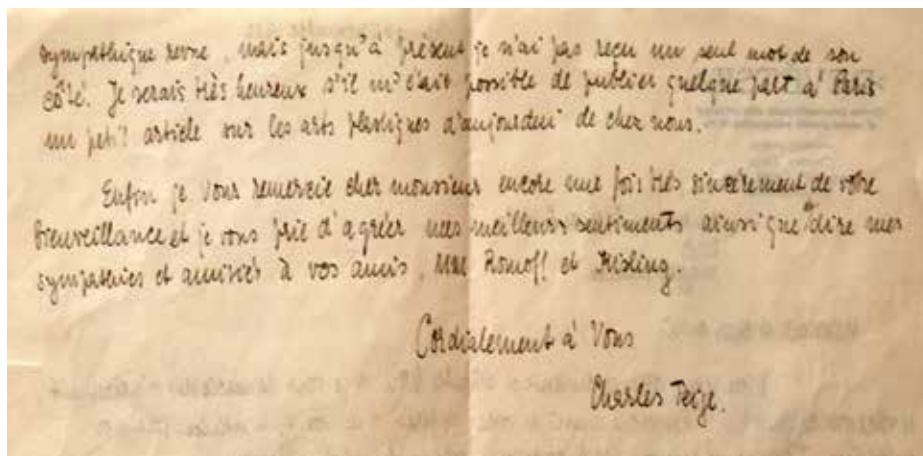 sympathique revue, mais jusqu'à présent je n'ai pas reçu un seul mot de son
côté. Je serais très heureux s'il m'était possible de publier quelque part à Paris
un petit article sur les arts plastiques d'aujourdui de chez nous.
Enfin je vous remercie cher monsieur encore une fois très sincèrement de votre
bienveillance et je vous prie d'agréer mes meilleurs sentiments ainsi que dire mes
sympathies et amitiés à vos amis, Romoff et Kisling.
Cordialement à Vous
Charles Teige.